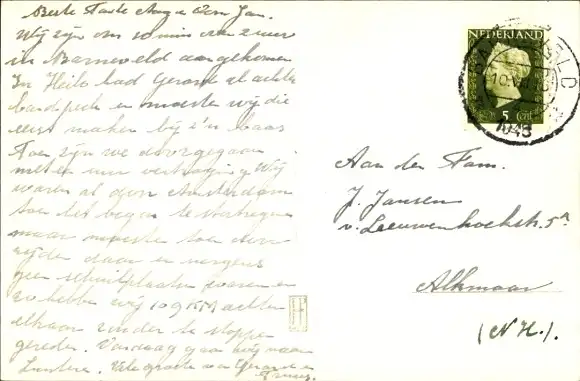 Beste Tante Aag en Oom Jan.
Wij zijn om 10 min over 2 uur
in Barneveld aangekomen
In Heilo had Gerard al achter
bandpech en moesten wij die
eerst maken bij z'n baas
Toen zijn we doorgegaan
met een uur vertraging Wij
waren al door Amsterdam
toen het begon te
maar moesten toen door
rijden daar er nergens
geen schuilplaatsen waren en
zo hebben wij 109 KM achter
elkaar zonder te stoppen
gereden. Vandaag gaan wij naar
Lunteren. Vele groeten van Gerard en
Truus.
NEDERLAND
5 CENT
BARNEVELD
1948
Aan den Fam.
J. Jansen
v. Leeuwenhoekstr. 5a
Alkmaar
(N H.).